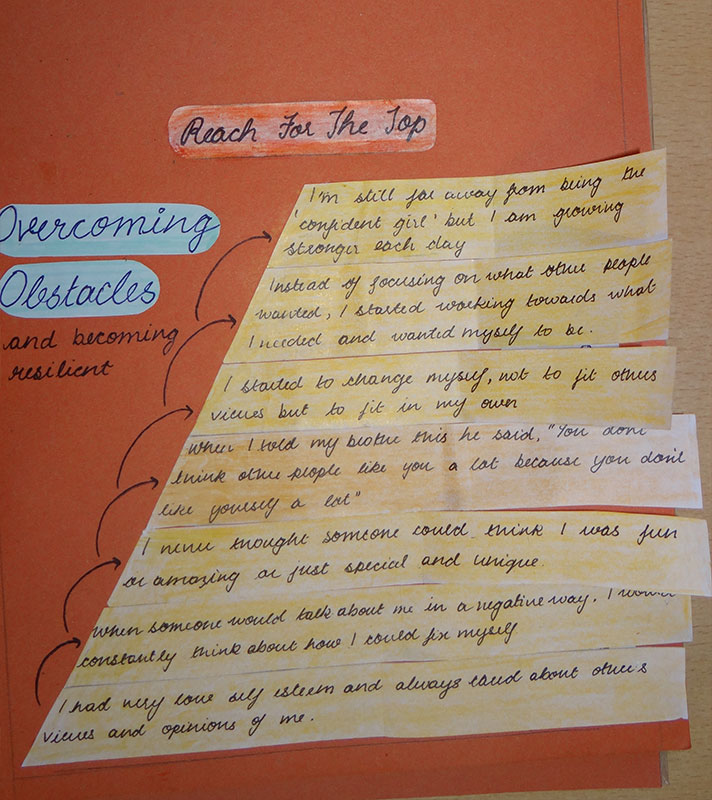 Reach For The Top
Overcoming
Obstacles
and becoming
resilient
I'm still far away from being the
'confident girl' but I am growing
stronger each day
Instead of focusing on what other people
wanted, I started working towards what
I needed and wanted myself to be.
I started to change myself, not to fit others
views but to fit in my own
When I told my brother this he said, "You don't
think other people like you a lot because you don't
like yourself a lot"
I never thought someone could think I was fun
or amazing or just special and unique.
When someone would talk about me in a negative way. I would
constantly think about how I could fix myself
I had very love self esteem and always cared about others
views and opinions of me.